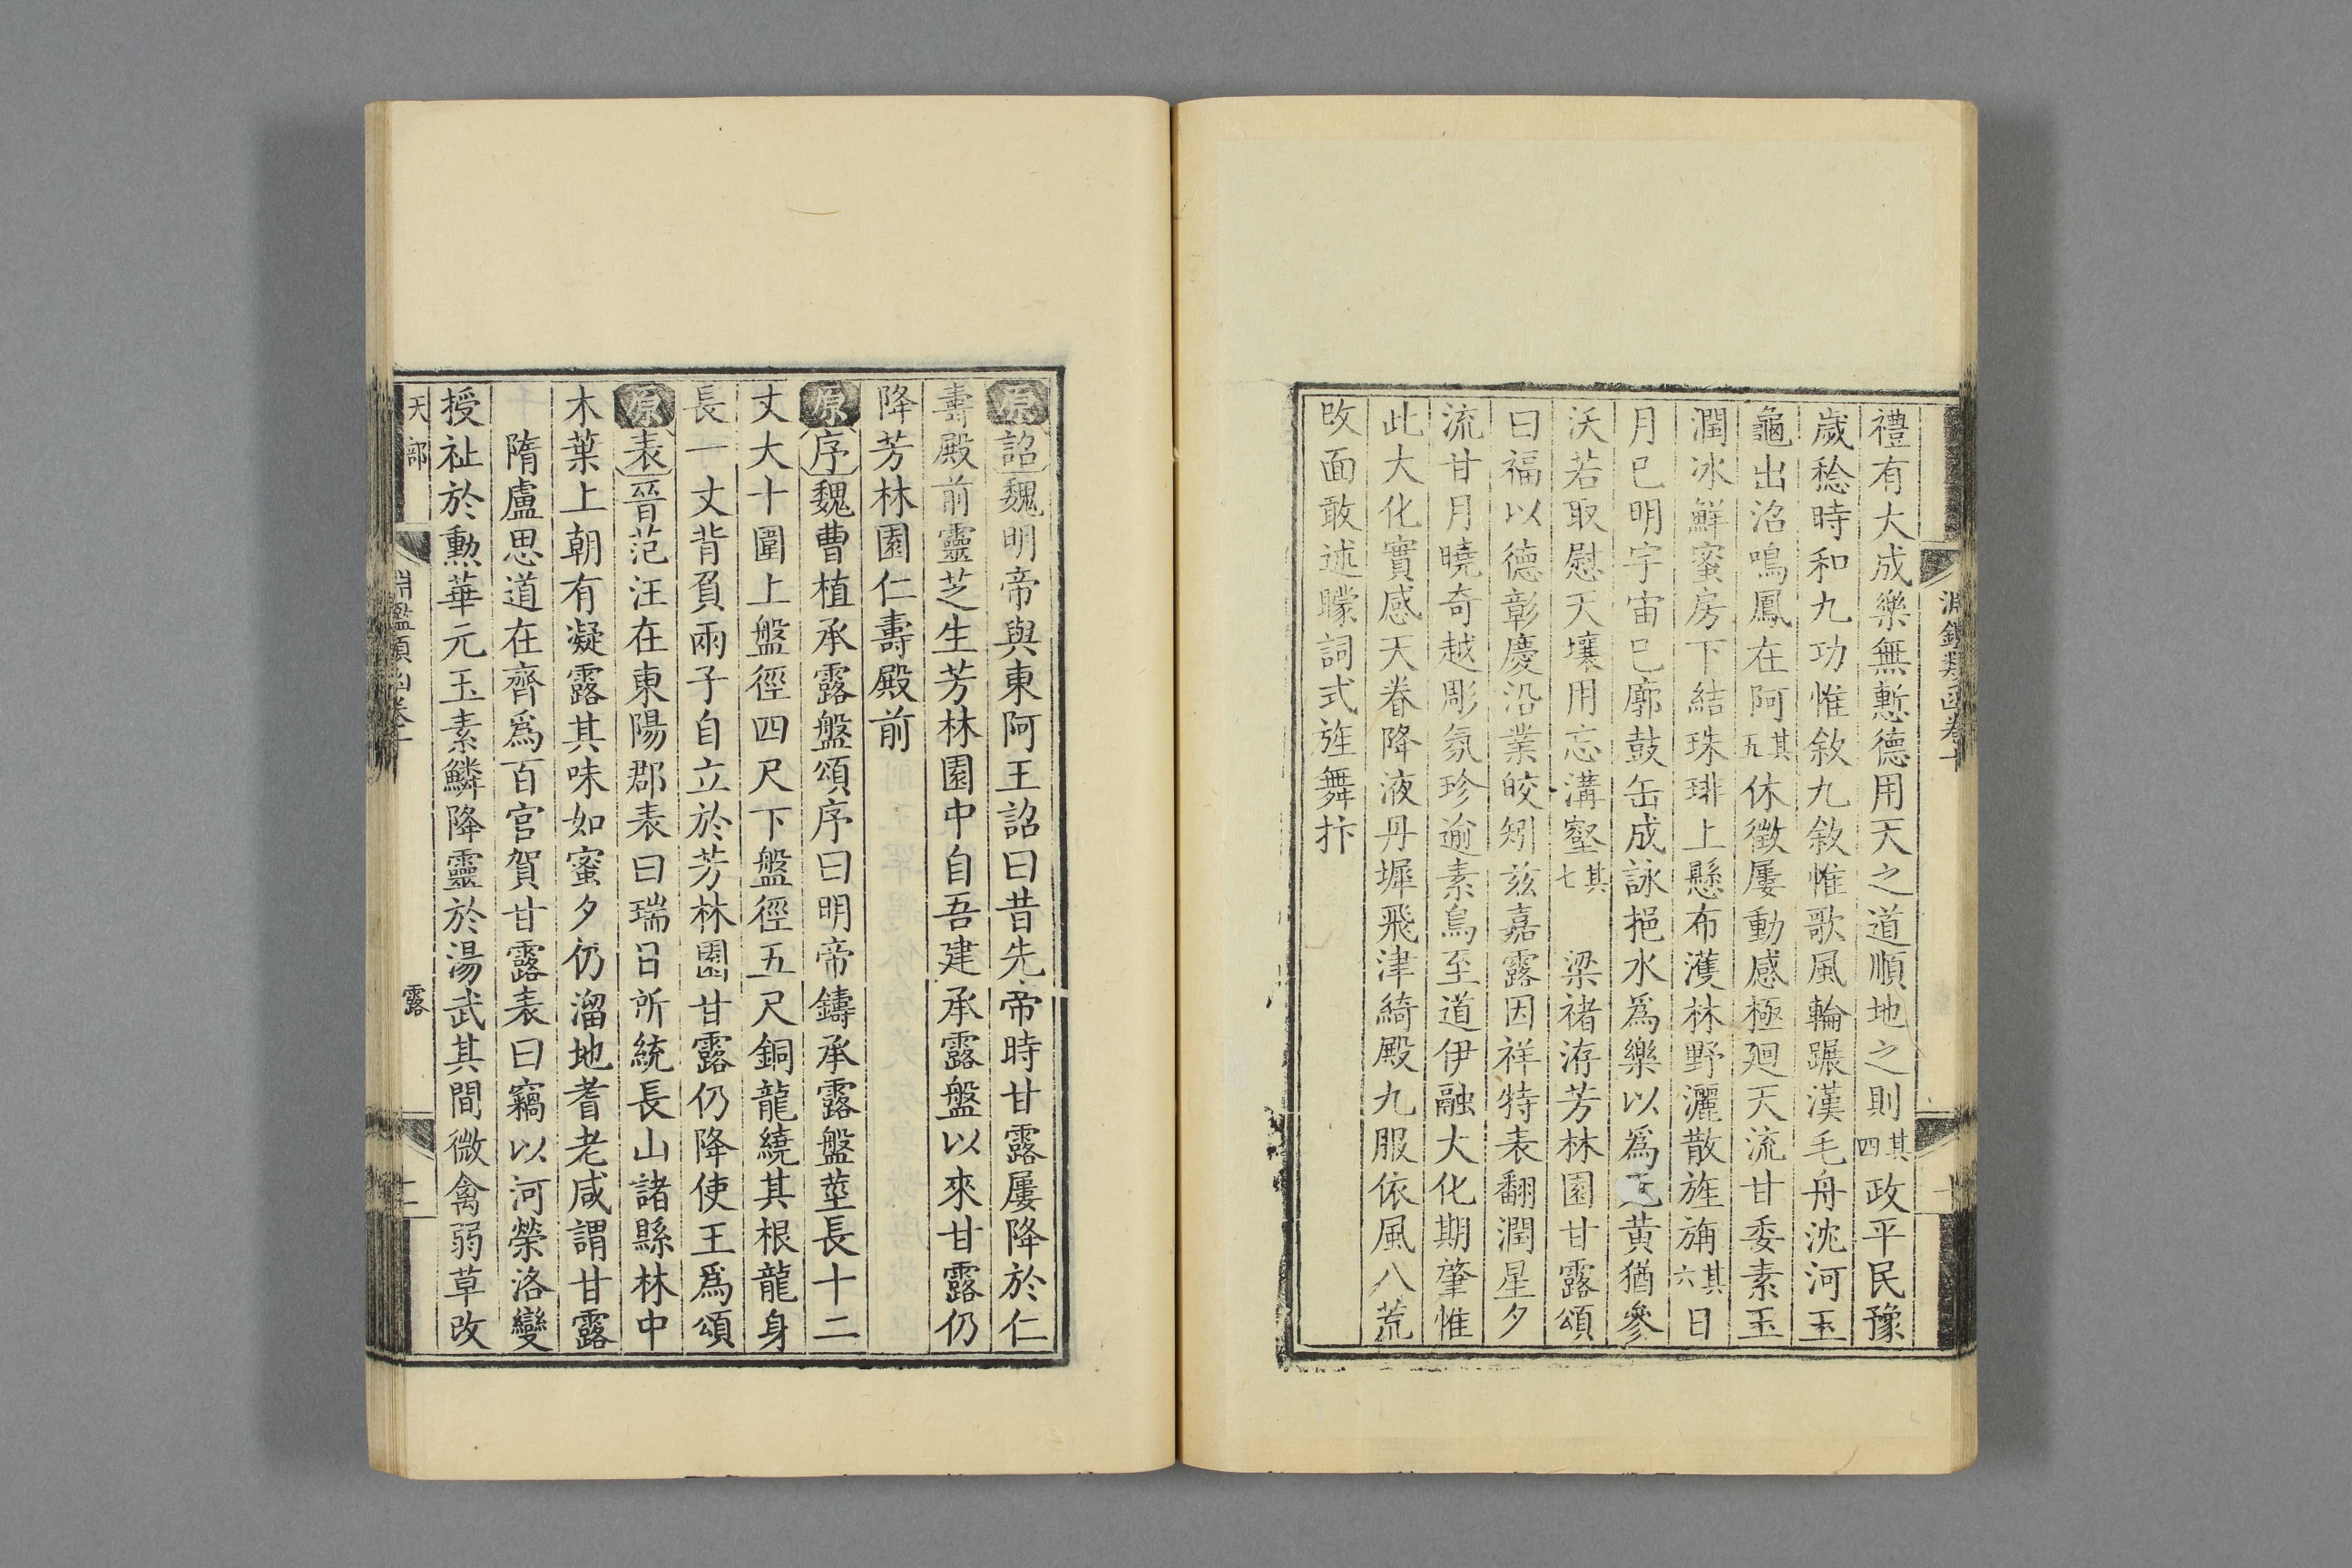 禮有大成樂無慙德用天之道順地之則其四政平民豫
歲稔時和九功惟敘九敘惟歌風輪蹍漢毛舟沈河玉
龜出沼鳴鳳在阿其五休徵屢動感極廻天流甘委素玉
潤冰鮮蜜房下結珠琲上懸布濩林野灑散旌旃其六日
月已明宇宙已廓鼓缶成詠挹水爲樂以爲黃猶參
沃若取慰天壤用忘溝壑其七 梁褚洊芳林園甘露頌
曰福以德彰慶沿業皎矧兹嘉露因祥特表翻潤星夕
流甘月曉奇越彫氛珍逾素鳥至道伊融大化期肇惟
此大化實感天眷降液丹墀飛津綺殿九服依風八荒
改面敢述矇詞式旌舞抃
原詔魏明帝與東阿王詔曰昔先帝時甘露屢降於仁
壽殿前靈芝生芳林園中自吾建承露盤以來甘露仍
降芳林園仁壽殿前
原序魏曹植承露盤頌序曰明帝鑄承露盤莖長十二
丈大十圍上盤徑四尺下盤徑五尺銅龍繞其根龍身
長一丈背負兩子自立於芳林園甘露仍降使王爲頌
原表晉范汪在東陽郡表曰瑞日所統長山諸縣林中
木葉上朝有凝露其味如蜜夕仍溜地耆老咸謂甘露
隋盧思道在齊爲百官賀甘露表曰竊以河榮洛變
授祉於勲華元玉素鱗降靈於湯武其間微禽弱草改
天部 淵鑑類函卷十 露 二